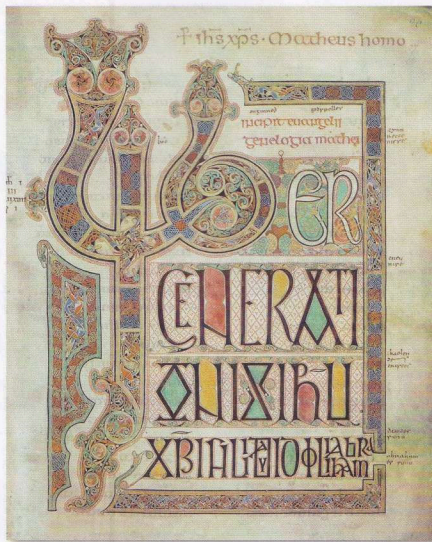 + ihs xps · Mattheus homo
incipit euangelii
genelogia mathei
LIBER
GENERATI
ONIS IHU
XPI FILII DAVID FILII ABRAHAM